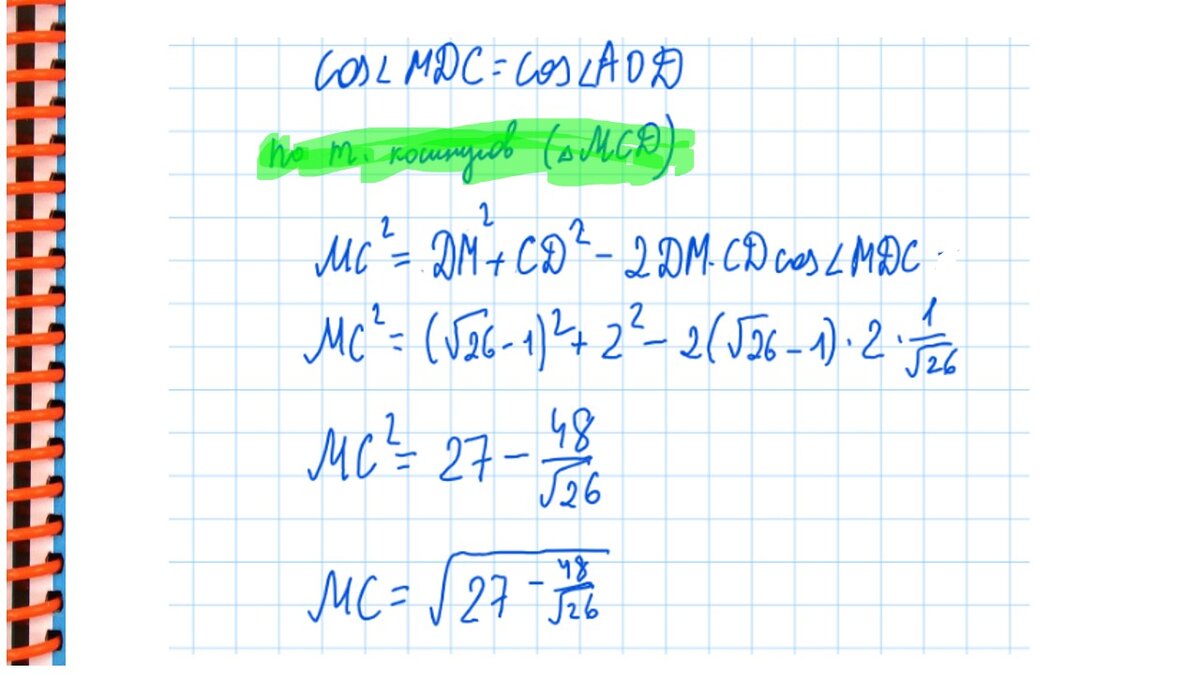 cos∠MDC = cos∠ADD
по т. косинусов (△MCD)
MC² = DM² + CD² - 2DM·CD cos∠MDC
MC² = (√26 - 1)² + 2² - 2(√26 - 1)·2·1/√26
MC² = 27 - 48/√26
MC = √(27 - 48/√26)